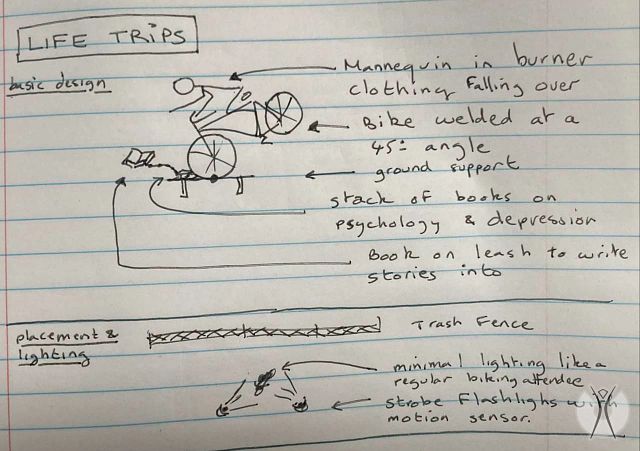 LIFE TRIPS
basic design
Mannequin in burner
clothing falling over
Bike welded at a
45° angle
ground support
stack of books on
psychology & depression
Book on leash to write
stories into
placement &
lighting
Trash Fence
minimal lighting like a
regular biking attendee
strobe flashlighs with
motion sensor.